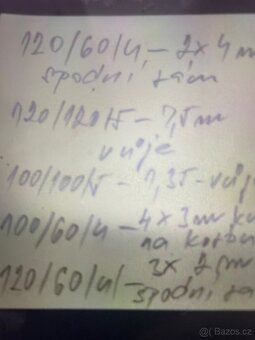 120/60/4 - 2x 4m
spodní rám
120/120/5 - 7,5m
vnoje
100/100/5 - 1,35 - voj
100/60/4 - 4x 3m
na korbu
120/60/4 - 2x 2,5m
spodní rá
Sbazoš.cz